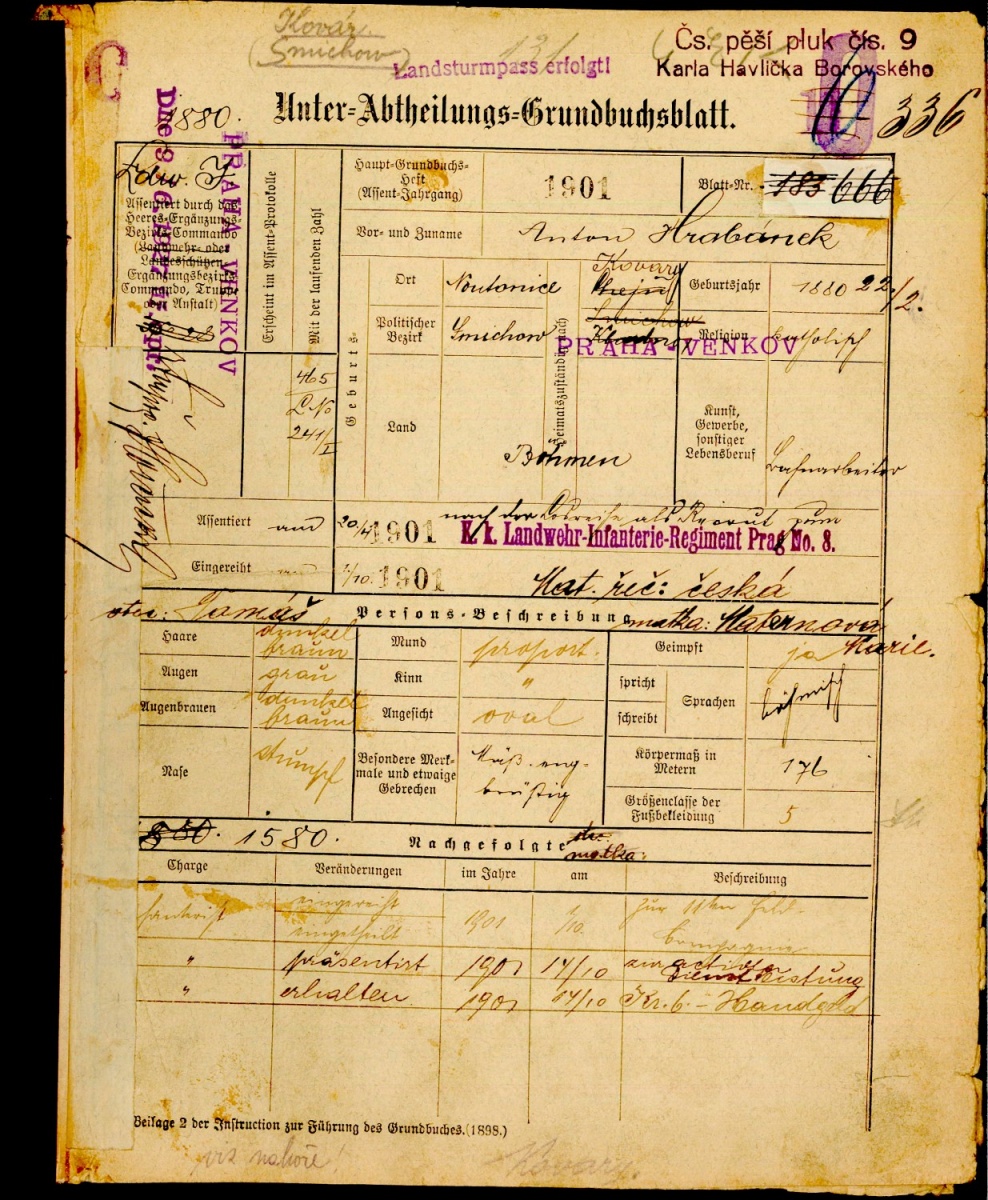 Kovár
(Smichow)
Landsturmpass erfolgt!
Čs. pěší pluk čís. 9
Karla Havlíčka Borovského
1880.
Unter-Abtheilungs-Grundbuchsblatt.
336
PRAHA-VENKOV
Ldw. I
Assentiert durch das
Heeres-Ergänzungs-
Bezirks-Commando
(Landwehr- oder
Landesschützen-
Ergänzungsbezirks-
Commando, Truppe
oder Anstalt)
Erscheint im Assent-Protokolle
Mit der laufenden Zahl
465
L. No
241/I
Haupt-Grundbuchs-
Heft
(Assent-Jahrgang)
1901
Blatt-Nr.
183 666
Vor- und Zuname
Anton Hrabánek
Geburts-
Ort
Noutonice
Heimatszuständig nach
Kováry
Smichow
Geburtsjahr
1880 22/2.
Politischer
Bezirk
Smichow
Religion
katholisch
PRAHA-VENKOV
Land
Böhmen
Kunst,
Gewerbe,
sonstiger
Lebensberuf
Bahnarbeiter
Assentiert am
1901
nach der Losreihe als Recrut zum
K. k. Landwehr-Infanterie-Regiment Prag No. 8.
Eingereiht am
1/10. 1901
Mat. řeč: česká
otec: Tomáš
Persons-Beschreibung
matka: Maternová
Marie.
Haare
dunkel
braun
Mund
proport.
Geimpft
ja
Augen
grau
Kinn
"
spricht
schreibt
Sprachen
böhmisch
Augenbrauen
dunkel
braun
Angesicht
oval
Nase
stumpf
Besondere Merk-
male und etwaige
Gebrechen
Mäß. eng-
brüstig
Körpermaß in
Metern
176
Größenclasse der
Fußbekleidung
5
880. 1580.
Nachgefolgte
matka:
Charge
Veränderungen
im Jahre
am
Beschreibung
eingereiht
eingetheilt
1901
1/10.
zur 11ten Feld-
compagnie
"
präsentirt
1901
14/10
zur activen
Dienstleistung
"
erhalten
1901
14/10
Kr. 6. - Handgeld
Beilage 2 der Instruction zur Führung des Grundbuches. (1898.)
viz nahoře!
Kováry.